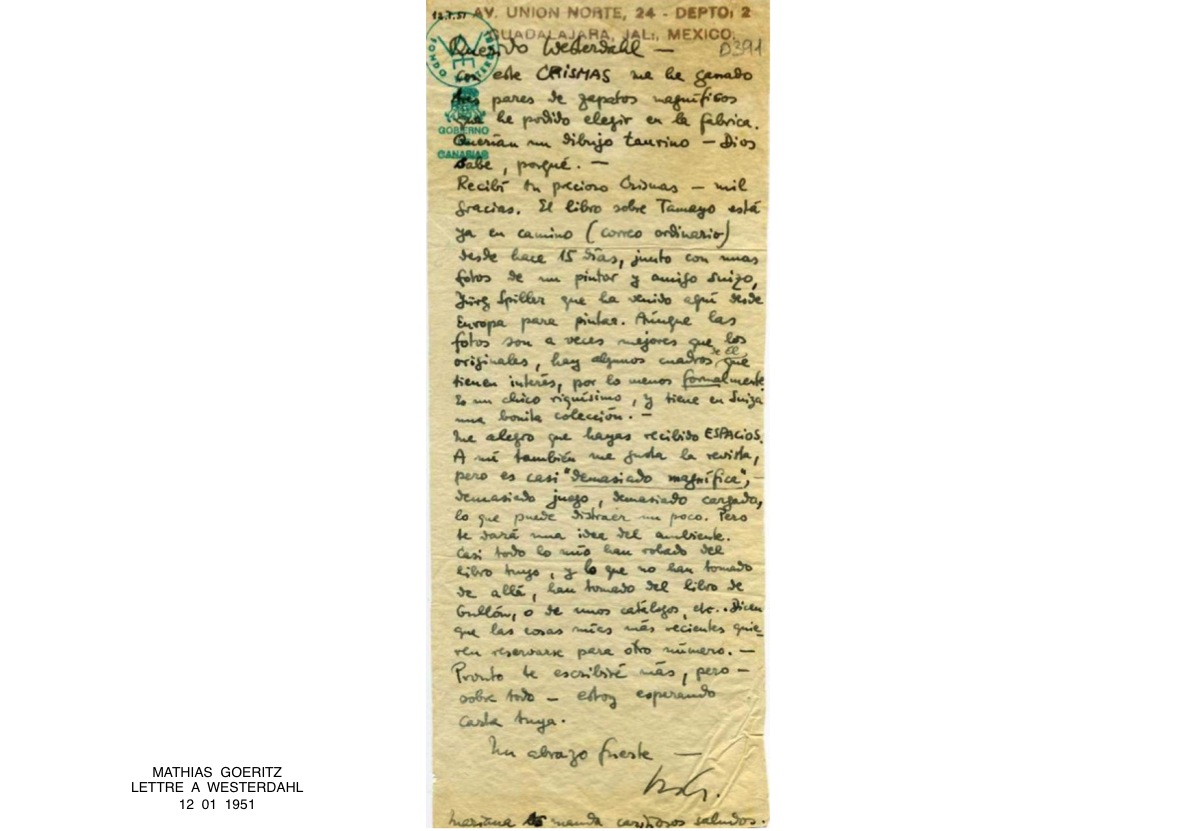 12.1.51 AV. UNION NORTE, 24 - DEPTO: 2
GUADALAJARA, JAL., MEXICO.
Querido Westerdahl — D391
con este CRISMAS me he ganado
tres pares de zapatos magníficos
que he podido elegir en la fabrica.
Querían un dibujo taurino — Dios
sabe, porqué. —
Recibí tu precioso Crismas — mil
gracias. El libro sobre Tamayo está
ya en camino (correo ordinario)
desde hace 15 días, junto con unas
fotos de un pintor y amigo suizo,
Jürg Spiller que ha venido aquí desde
Europa para pintar. Aúnque las
fotos son a veces mejores que los
originales, hay algunos cuadros de él que
tienen interés, por lo menos formalmente.
Es un chico riquísimo, y tiene en Suiza
una bonita colección. —
Me alegro que hayas recibido ESPACIOS.
A mí también me gusta la revista,
pero es casi "demasiado magnífica", —
demasiado juego, demasiado cargada,
lo que puede distraer un poco. Pero
te dará una idea del ambiente.
Casi todo lo mío han robado del
libro tuyo, y lo que no han tomado
de allá, han tomado del libro de
Gullón, o de unos catálogos, etc.. Dicen
que las cosas mías más recientes quie-
ren reservarse para otro número. —
Pronto te escribiré más, pero —
sobre todo — estoy esperando
carta tuya.
Un abrazo fuerte —
Mariana te manda cariñosos saludos.
FONDO WESTERDAHL
GOBIERNO
CANARIAS
MATHIAS GOERITZ
LETTRE A WESTERDAHL
12 01 1951